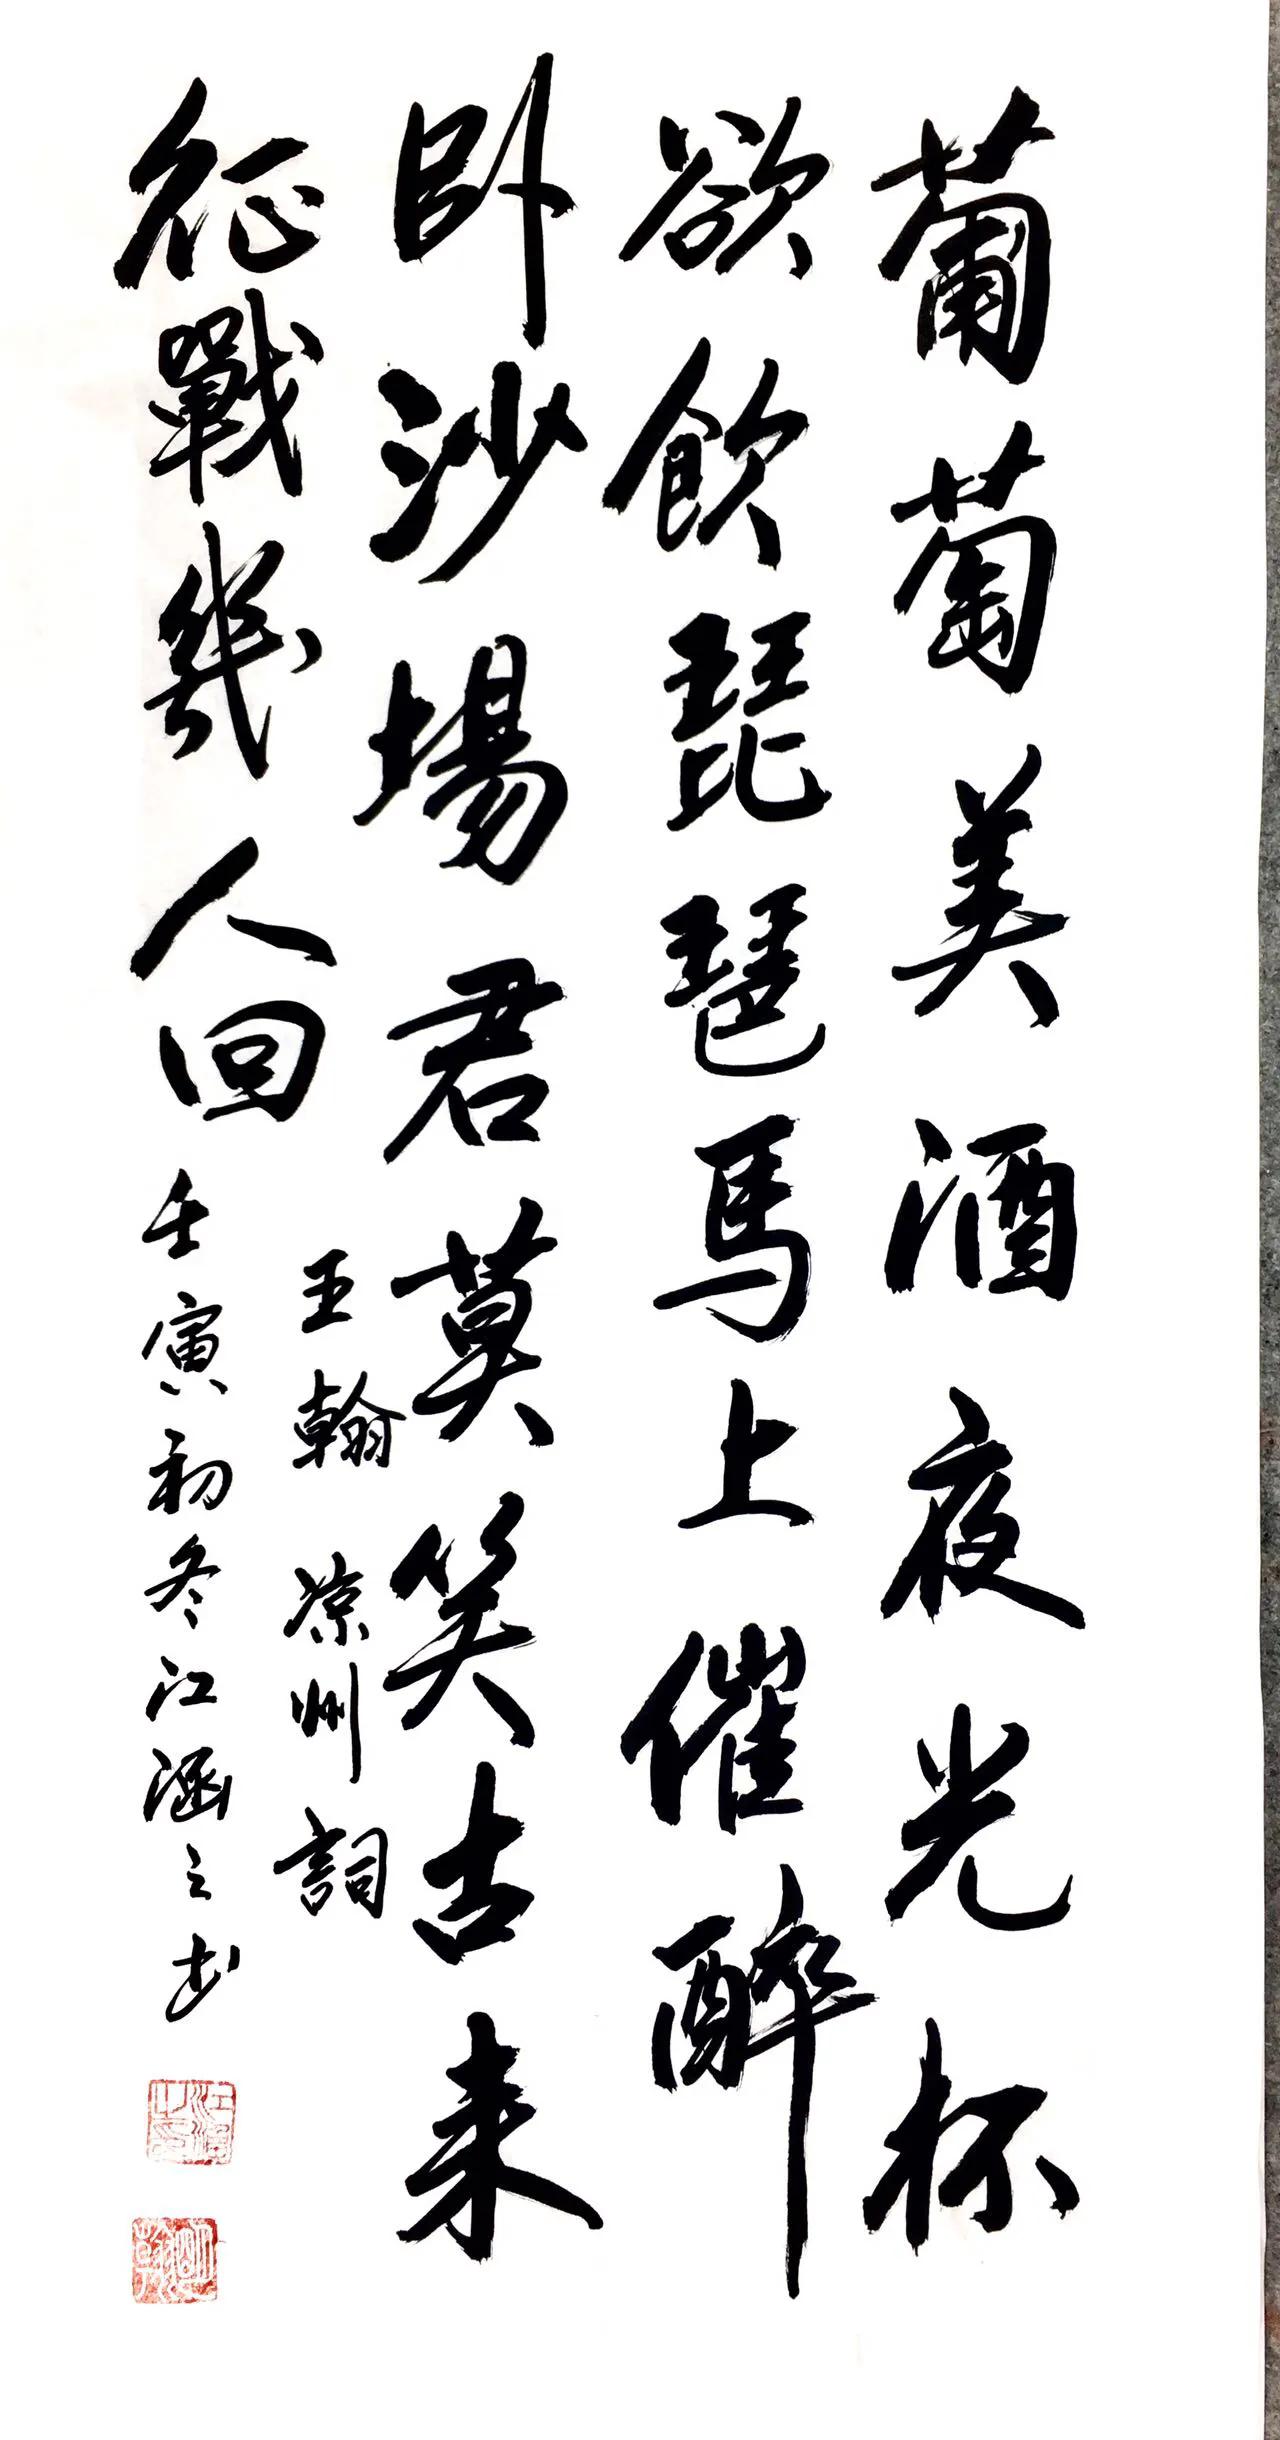 葡萄美酒夜光杯
欲飲琵琶馬上催醉
卧沙場君莫笑古来
征戰幾人回
王翰凉州詞
壬寅初冬江涵之书